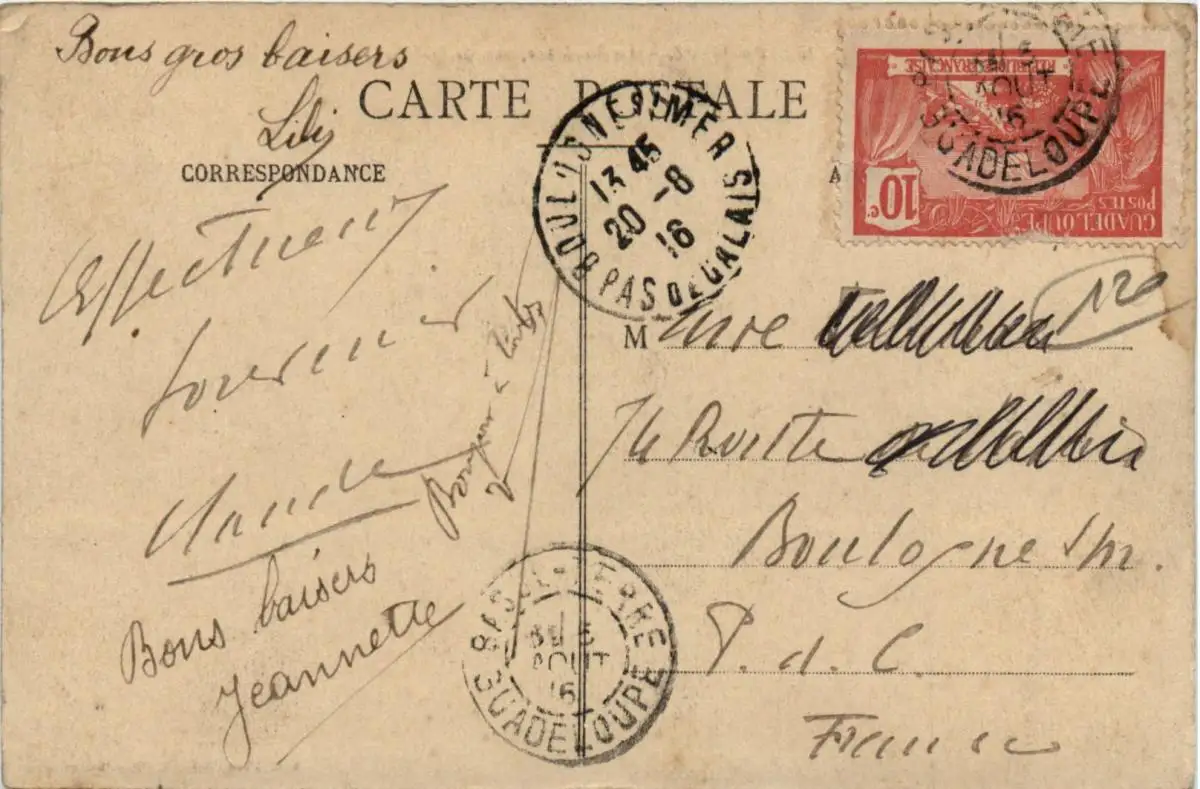 Bons gros baisers
Lili
CARTE POSTALE
CORRESPONDANCE
Affectueux
souvenir
Bons baisers
Jeannette
BOULOGNE S/MER
13 45
20 -8
16
PAS DE CALAIS
BASSE-TERRE
5
AOUT
16
GUADELOUPE
RÉPUBLIQUE FRANÇAISE
10 c.
GUADELOUPE
POSTES
BASSE-TERRE
5
AOUT
16
GUADELOUPE
A
M
74 Route
Boulogne s/m.
P. d. C.
France